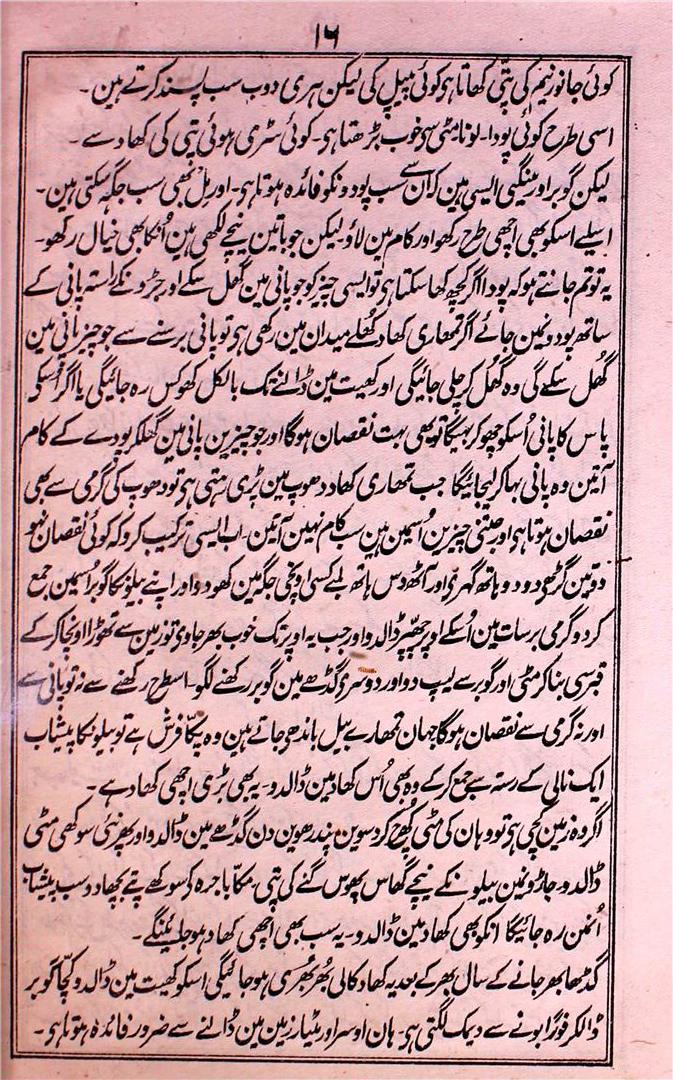 ۱۶
کوئی جانور نیم کی پتی کھاتا ہی کوئی پیپل کی لیکن ہری دوب سب پسند کرتے ہین۔
اسی طرح کوئی پودا۔ لونا مٹی سی خوب بڑھتا ہی۔ کوئی سڑی ہوئی پتی کی کھاد سے۔
لیکن گوبر اور مینگنی ایسی ہین کہ ان سے سب پودونکو فائدہ ہوتا ہی۔ اور مل بھی سب جگہ سکتی ہین۔
اسلیے اسکو بھی اچھی طرح رکھو اور کام مین لاؤ۔ لیکن جو باتین نیچے لکھی ہین اُنکا بھی خیال رکھو۔
یہ تو تم جانتے ہو کہ پودا اگر کچھ کھا سکتا ہی تو ایسی چیز کو جو پانی مین گھل سکے اور جڑونکے راستہ پانی کے
ساتھ پودونمین جائے اگر تمھاری کھاد کھلے میدان مین رکھی ہی تو پانی برسنے سے جو چیز پانی مین
گھل سکے گی وہ گھل کر چلی جائیگی اور کھیت مین ڈالنے تک بالکل کھوکس رہ جائیگی یا اگر اُسکی
پاس کا پانی اُسکو چھو کر بہیگا تو بھی بہت نقصان ہوگا اور جو چیزین پانی مین گھلکر پودے کے کام
آتین وہ پانی بہا کر لیجائیگا جب تمھاری کھاد دھوپ مین پڑی رہتی ہی تو دھوپ کی گرمی سے بھی
نقصان ہوتا ہی اور جتنی چیزین اُسمین ہین سب کام نہین آتین۔ اب ایسی ترکیب کرو کہ کوئی نقصان نہو
دو تین گڑھی دو دو ہاتھ گہری اور آٹھ دس ہاتھ لمبے کسی اونچی جگہ مین کھودو اور اپنے بیلونکا گوبر اُسمین جمع
کردو گرمی برسات مین اُسکے اوپر چھپّر ڈالدو اور جب یہ اوپر تک خوب بھر جاوی تو زمین سے تھوڑا اونچا کرکے
قبر سی بنا کر مٹی اور گوبر سے لیپ دو اور دوسری گڈھے مین گوبر رکھنے لگو۔ اسطرح رکھنے سے نہ تو پانی سے
اور نہ گرمی سے نقصان ہوگا جہان تمھارے بیل باندھی جاتے ہین وہ پکّا فرش ہے تو بیلونکا پیشاب
ایک نالی کے رستہ سے جمع کرکے وہ بھی اُس کھاد مین ڈالدو۔ یہ بھی بڑی اچھی کھاد ہے۔
اگر وہ زمین کچی ہی تو وہان کی مٹی کھرچ کر دسوین پندرھوین دن گڈھے مین ڈالدو اور پھر نئی سوکھی مٹی
ڈالدو۔ جاڑونمین بیلونکے نیچے گھاس پھوس گنے کی پتی۔ مکّا باجرہ کے سوکھے پتے بچھا دو سب پیشاب
اُنمن رہ جائیگا انکو بھی کھاد مین ڈالدو۔ یہ سب بھی اچھی کھاد ہو جائینگے۔
گڈھا بھر جانے کے سال بھر کے بعد یہ کھاد کالی بھُر بھُری ہو جائیگی اسکو کھیت مین ڈالدو کچّا گوبر
ڈالکر فوراً بونے سے دیمک لگتی ہی۔ ہان اوسر اور مٹیار زمین مین ڈالنے سے ضرور فائدہ ہوتا ہی۔